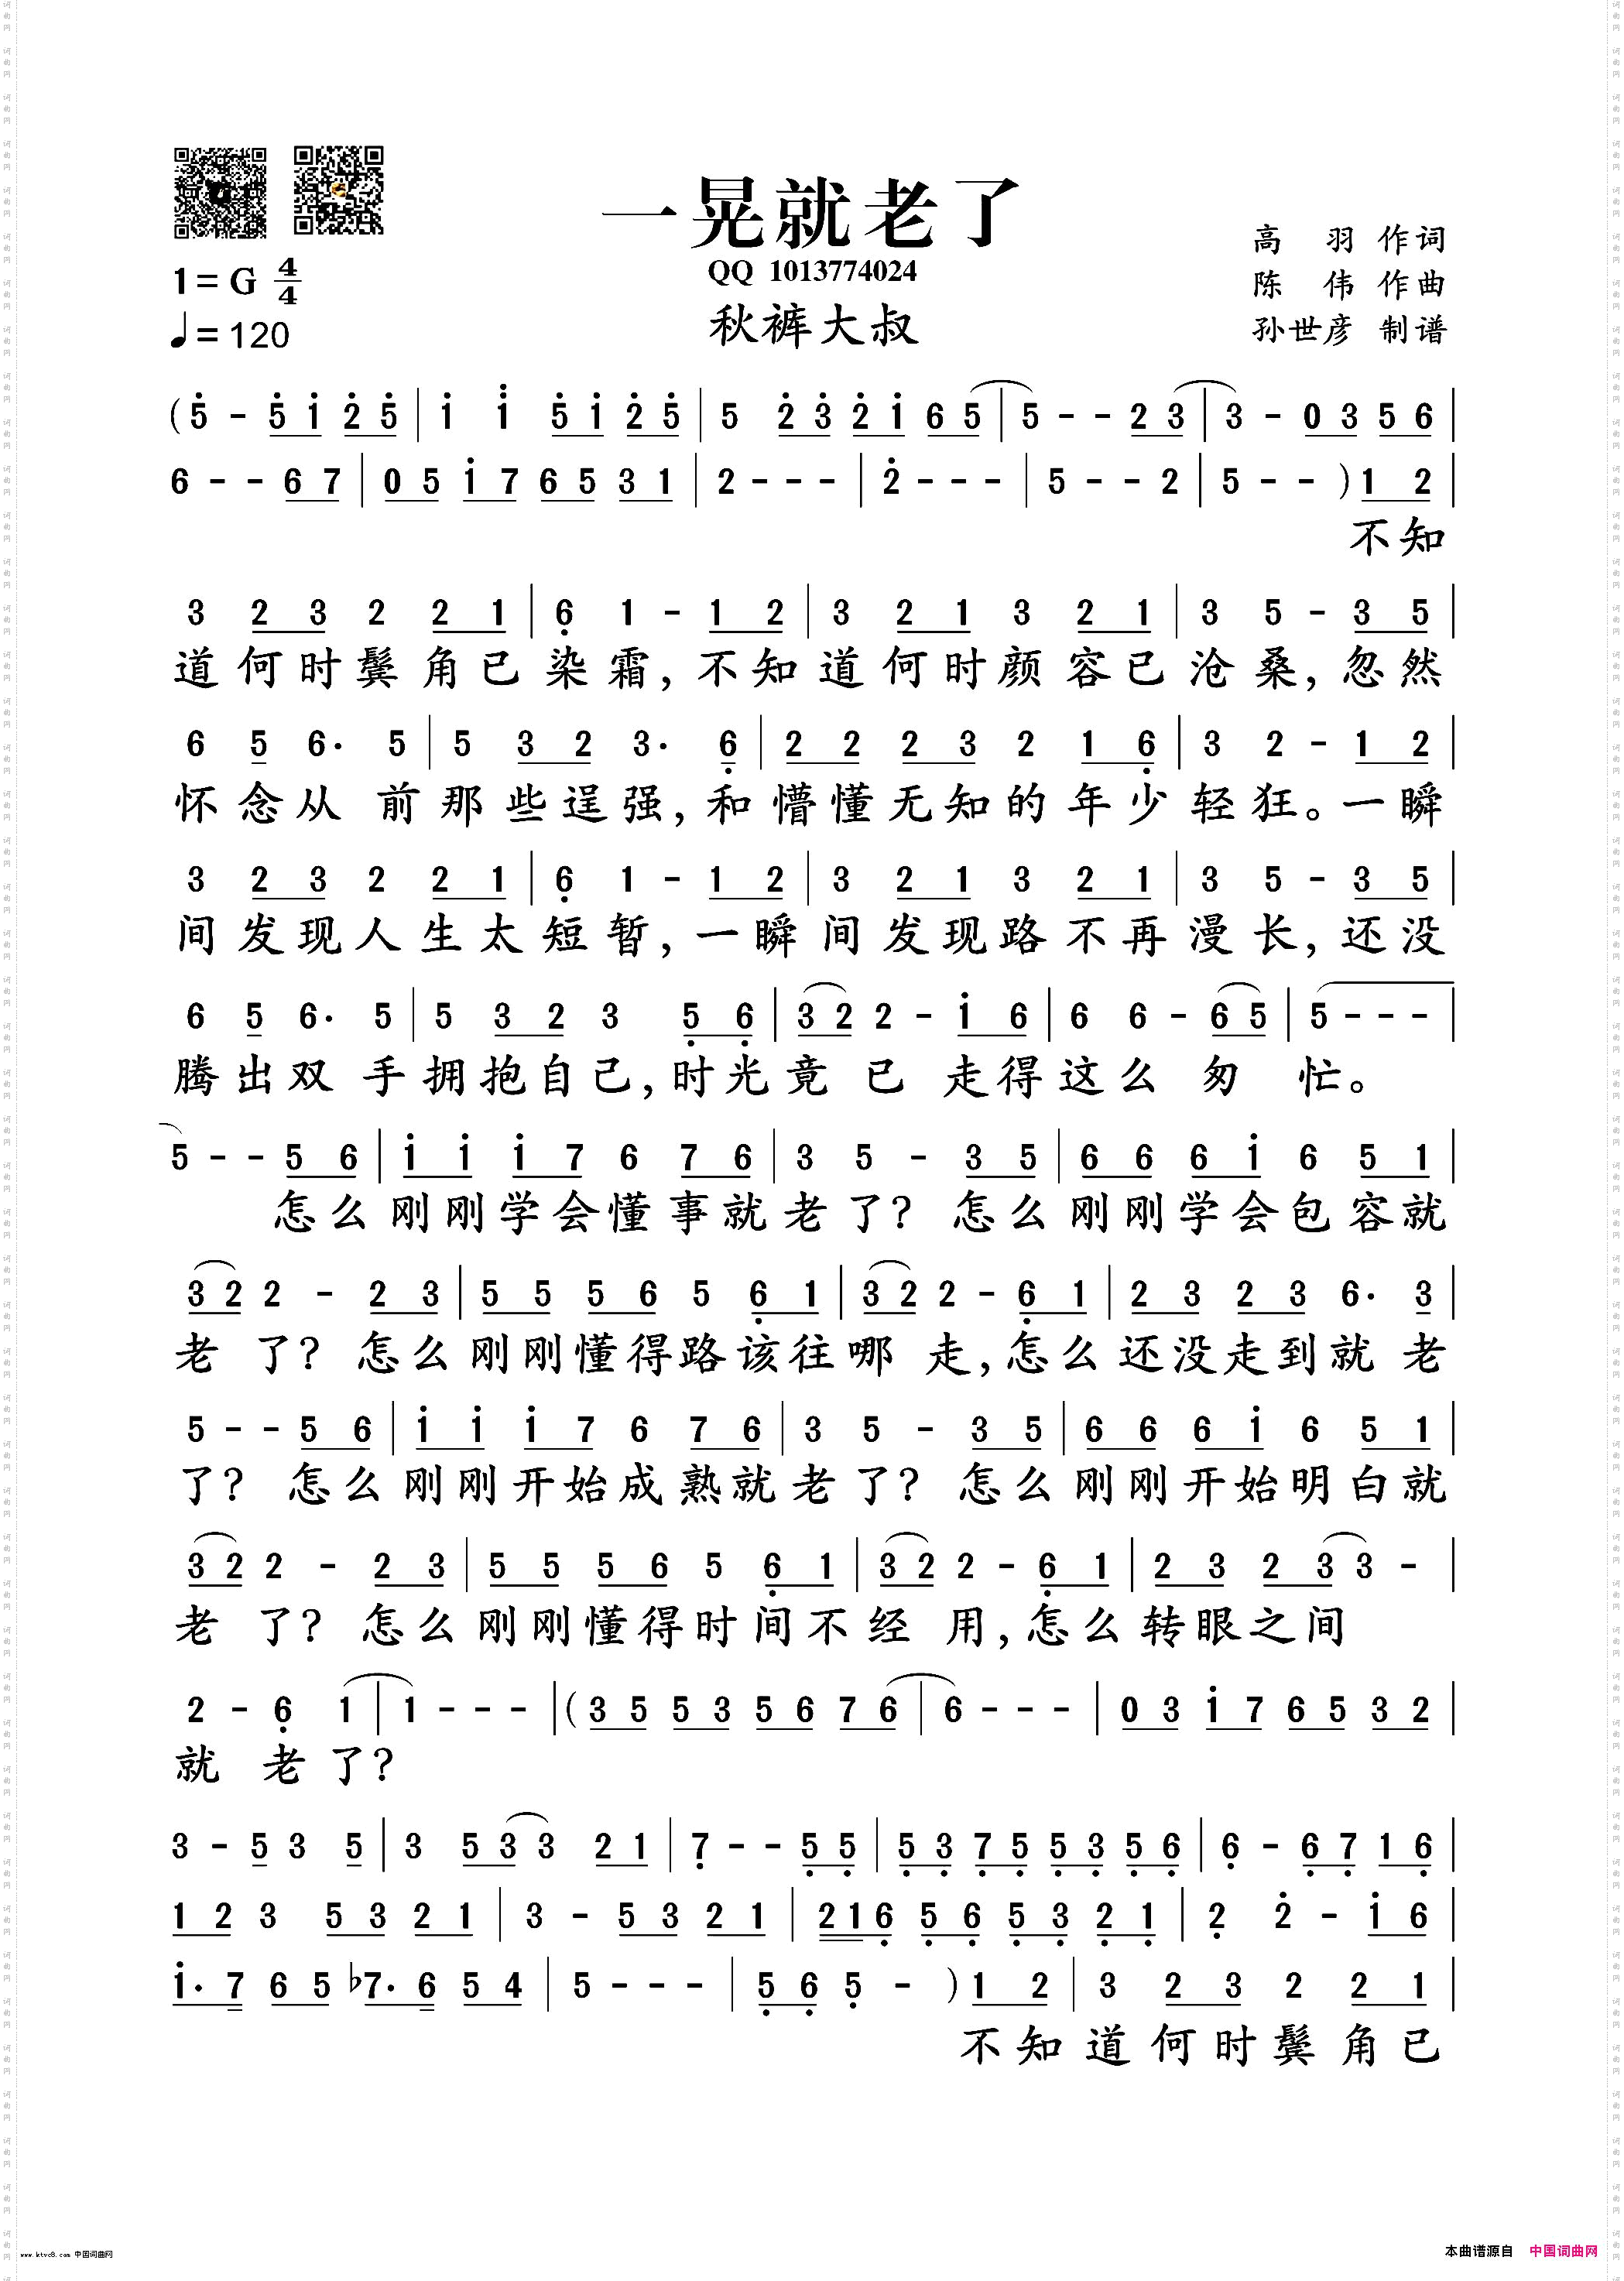 一晃就老了
QQ 1013774024
秋裤大叔
高 羽 作词
陈 伟 作曲
孙世彦 制谱
1=G 4/4
♩=120
(5 - 5 i 2 5 | i i 5 i 2 5 | 5 2 3 2 i 6 5 | 5 - - 2 3 | 3 - 0 3 5 6 |
6 - - 6 7 | 0 5 i 7 6 5 3 1 | 2 - - - | 2 - - - | 5 - - 2 | 5 - - ) 1 2 |
不知
3 2 3 2 2 1 | 6 1 - 1 2 | 3 2 1 3 2 1 | 3 5 - 3 5 |
道何时鬓角已染霜,不知道何时颜容已沧桑,忽然
6 5 6· 5 | 5 3 2 3· 6 | 2 2 2 3 2 1 6 | 3 2 - 1 2 |
怀念从前那些逞强,和懵懂无知的年少轻狂。一瞬
3 2 3 2 2 1 | 6 1 - 1 2 | 3 2 1 3 2 1 | 3 5 - 3 5 |
间发现人生太短暂,一瞬间发现路不再漫长,还没
6 5 6· 5 | 5 3 2 3 5 6 | 3 2 2 - i 6 | 6 6 - 6 5 | 5 - - - |
腾出双手拥抱自己,时光竟已走得这么匆忙。
5 - - 5 6 | i i i 7 6 7 6 | 3 5 - 3 5 | 6 6 6 i 6 5 1 |
怎么刚刚学会懂事就老了?怎么刚刚学会包容就
3 2 2 - 2 3 | 5 5 5 6 5 6 1 | 3 2 2 - 6 1 | 2 3 2 3 6· 3 |
老了?怎么刚刚懂得路该往哪走,怎么还没走到就老
5 - - 5 6 | i i i 7 6 7 6 | 3 5 - 3 5 | 6 6 6 i 6 5 1 |
了?怎么刚刚开始成熟就老了?怎么刚刚开始明白就
3 2 2 - 2 3 | 5 5 5 6 5 6 1 | 3 2 2 - 6 1 | 2 3 2 3 3 - |
老了?怎么刚刚懂得时间不经用,怎么转眼之间
2 - 6 1 | 1 - - - | (3 5 5 3 5 6 7 6 | 6 - - - | 0 3 i 7 6 5 3 2 |
就老了?
3 - 5 3 5 | 3 5 3 3 2 1 | 7 - - 5 5 | 5 3 7 5 5 3 5 6 | 6 - 6 7 1 6 |
1 2 3 5 3 2 1 | 3 - 5 3 2 1 | 2 1 6 5 6 5 3 2 1 | 2 2 - i 6 |
i· 7 6 5 ♭7· 6 5 4 | 5 - - - | 5 6 5 - ) 1 2 | 3 2 3 2 2 1 |
不知道何时鬓角已
www.ktvc8.com 中国词曲网
本曲谱源自 中国词曲网